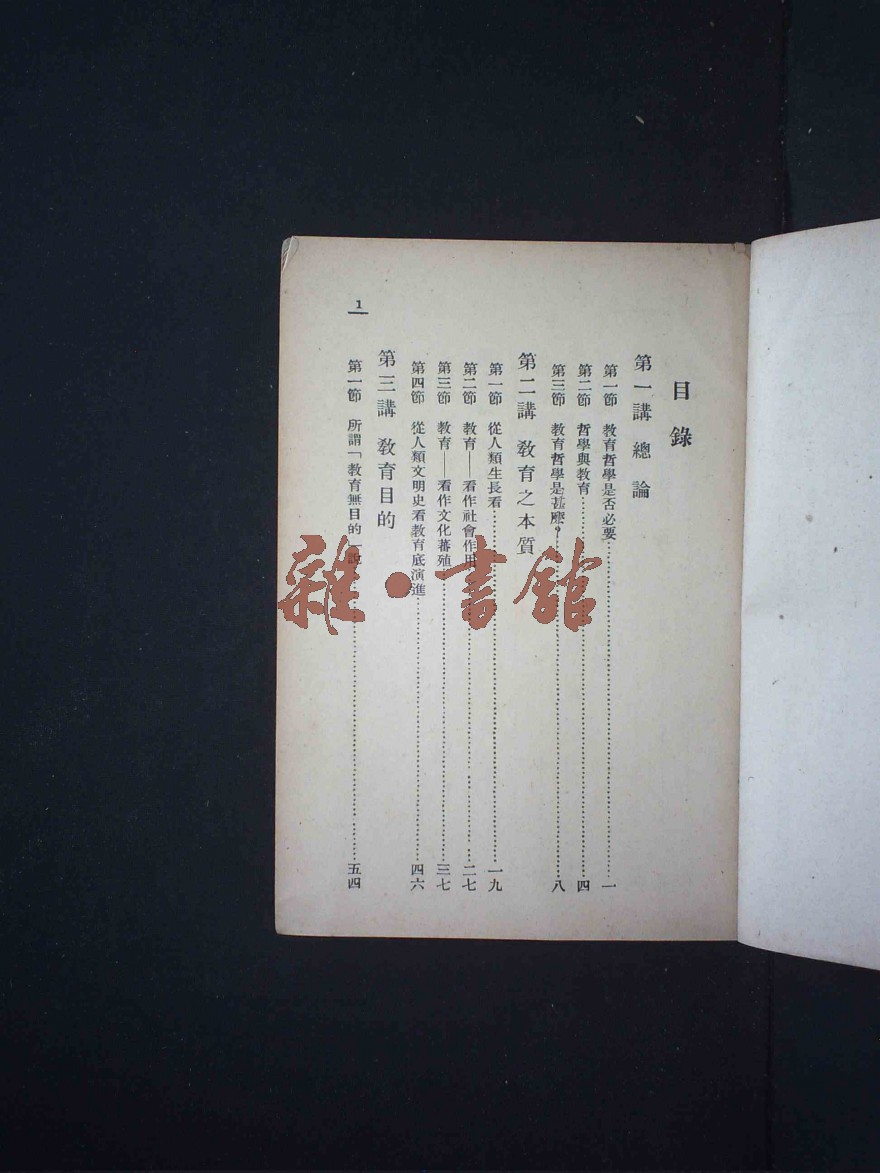 目錄
第一講 總論
第一節 教育哲學是否必要……一
第二節 哲學與教育……四
第三節 教育哲學是甚麼？……八
第二講 教育之本質
第一節 從人類生長看……一九
第二節 教育——看作社會作用……二七
第三節 教育——看作文化蕃殖……三七
第四節 從人類文明史看教育底演進……四六
第三講 教育目的
第一節 所謂「教育無目的」說……五四
1
雜·書館